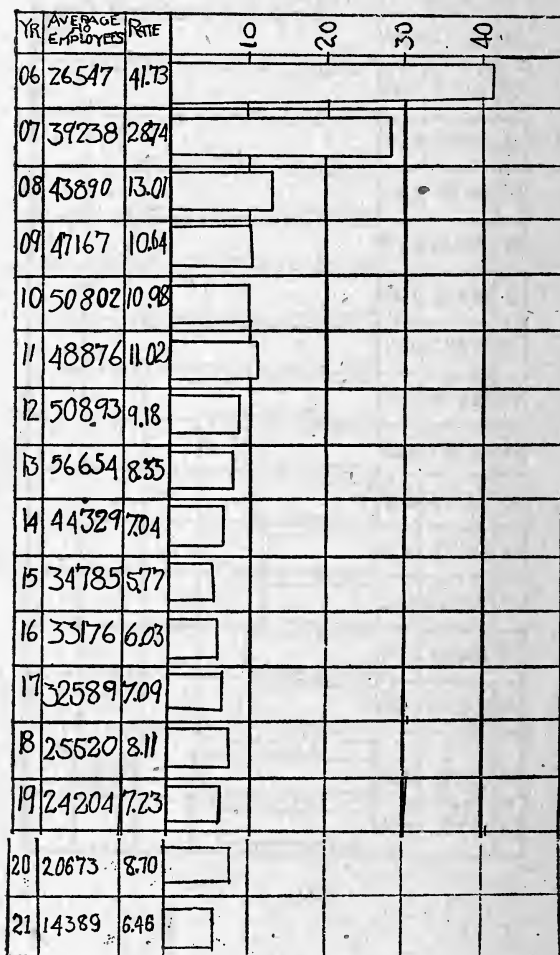 YR AVERAGE NO EMPLOYEES RATE 10 20 30 40
06 26547 41.73
07 39238 28.74
08 43890 13.01
09 47167 10.64
10 50802 10.98
11 48876 11.02
12 50893 9.18
13 56654 8.35
14 44329 7.04
15 34785 5.77
16 33176 6.03
17 32589 7.09
18 25520 8.11
19 24204 7.23
20 20673 8.70
21 14389 6.46